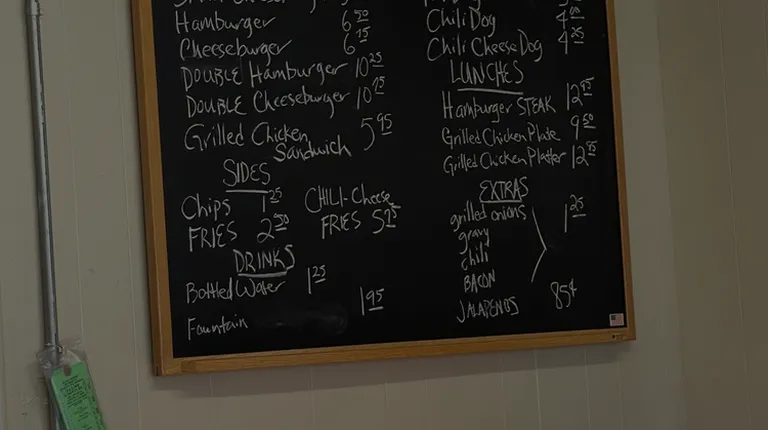 Hamburger 6 50
Cheeseburger 6 75
DOUBLE Hamburger 10 25
DOUBLE Cheeseburger 10 75
Grilled Chicken Sandwich 5 95
SIDES
Chips 1 25
FRIES 2 50
CHILI-Cheese FRIES 5 75
DRINKS
Bottled Water 1 25
Fountain 1 95
Chili Dog 4 00
Chili Cheese Dog 4 25
LUNCHES
Hamburger STEAK 12 95
Grilled Chicken Plate 9 50
Grilled Chicken Platter 12 95
EXTRAS
grilled onions
gravy
chili
BACON
1 25
JALAPENOS 85¢